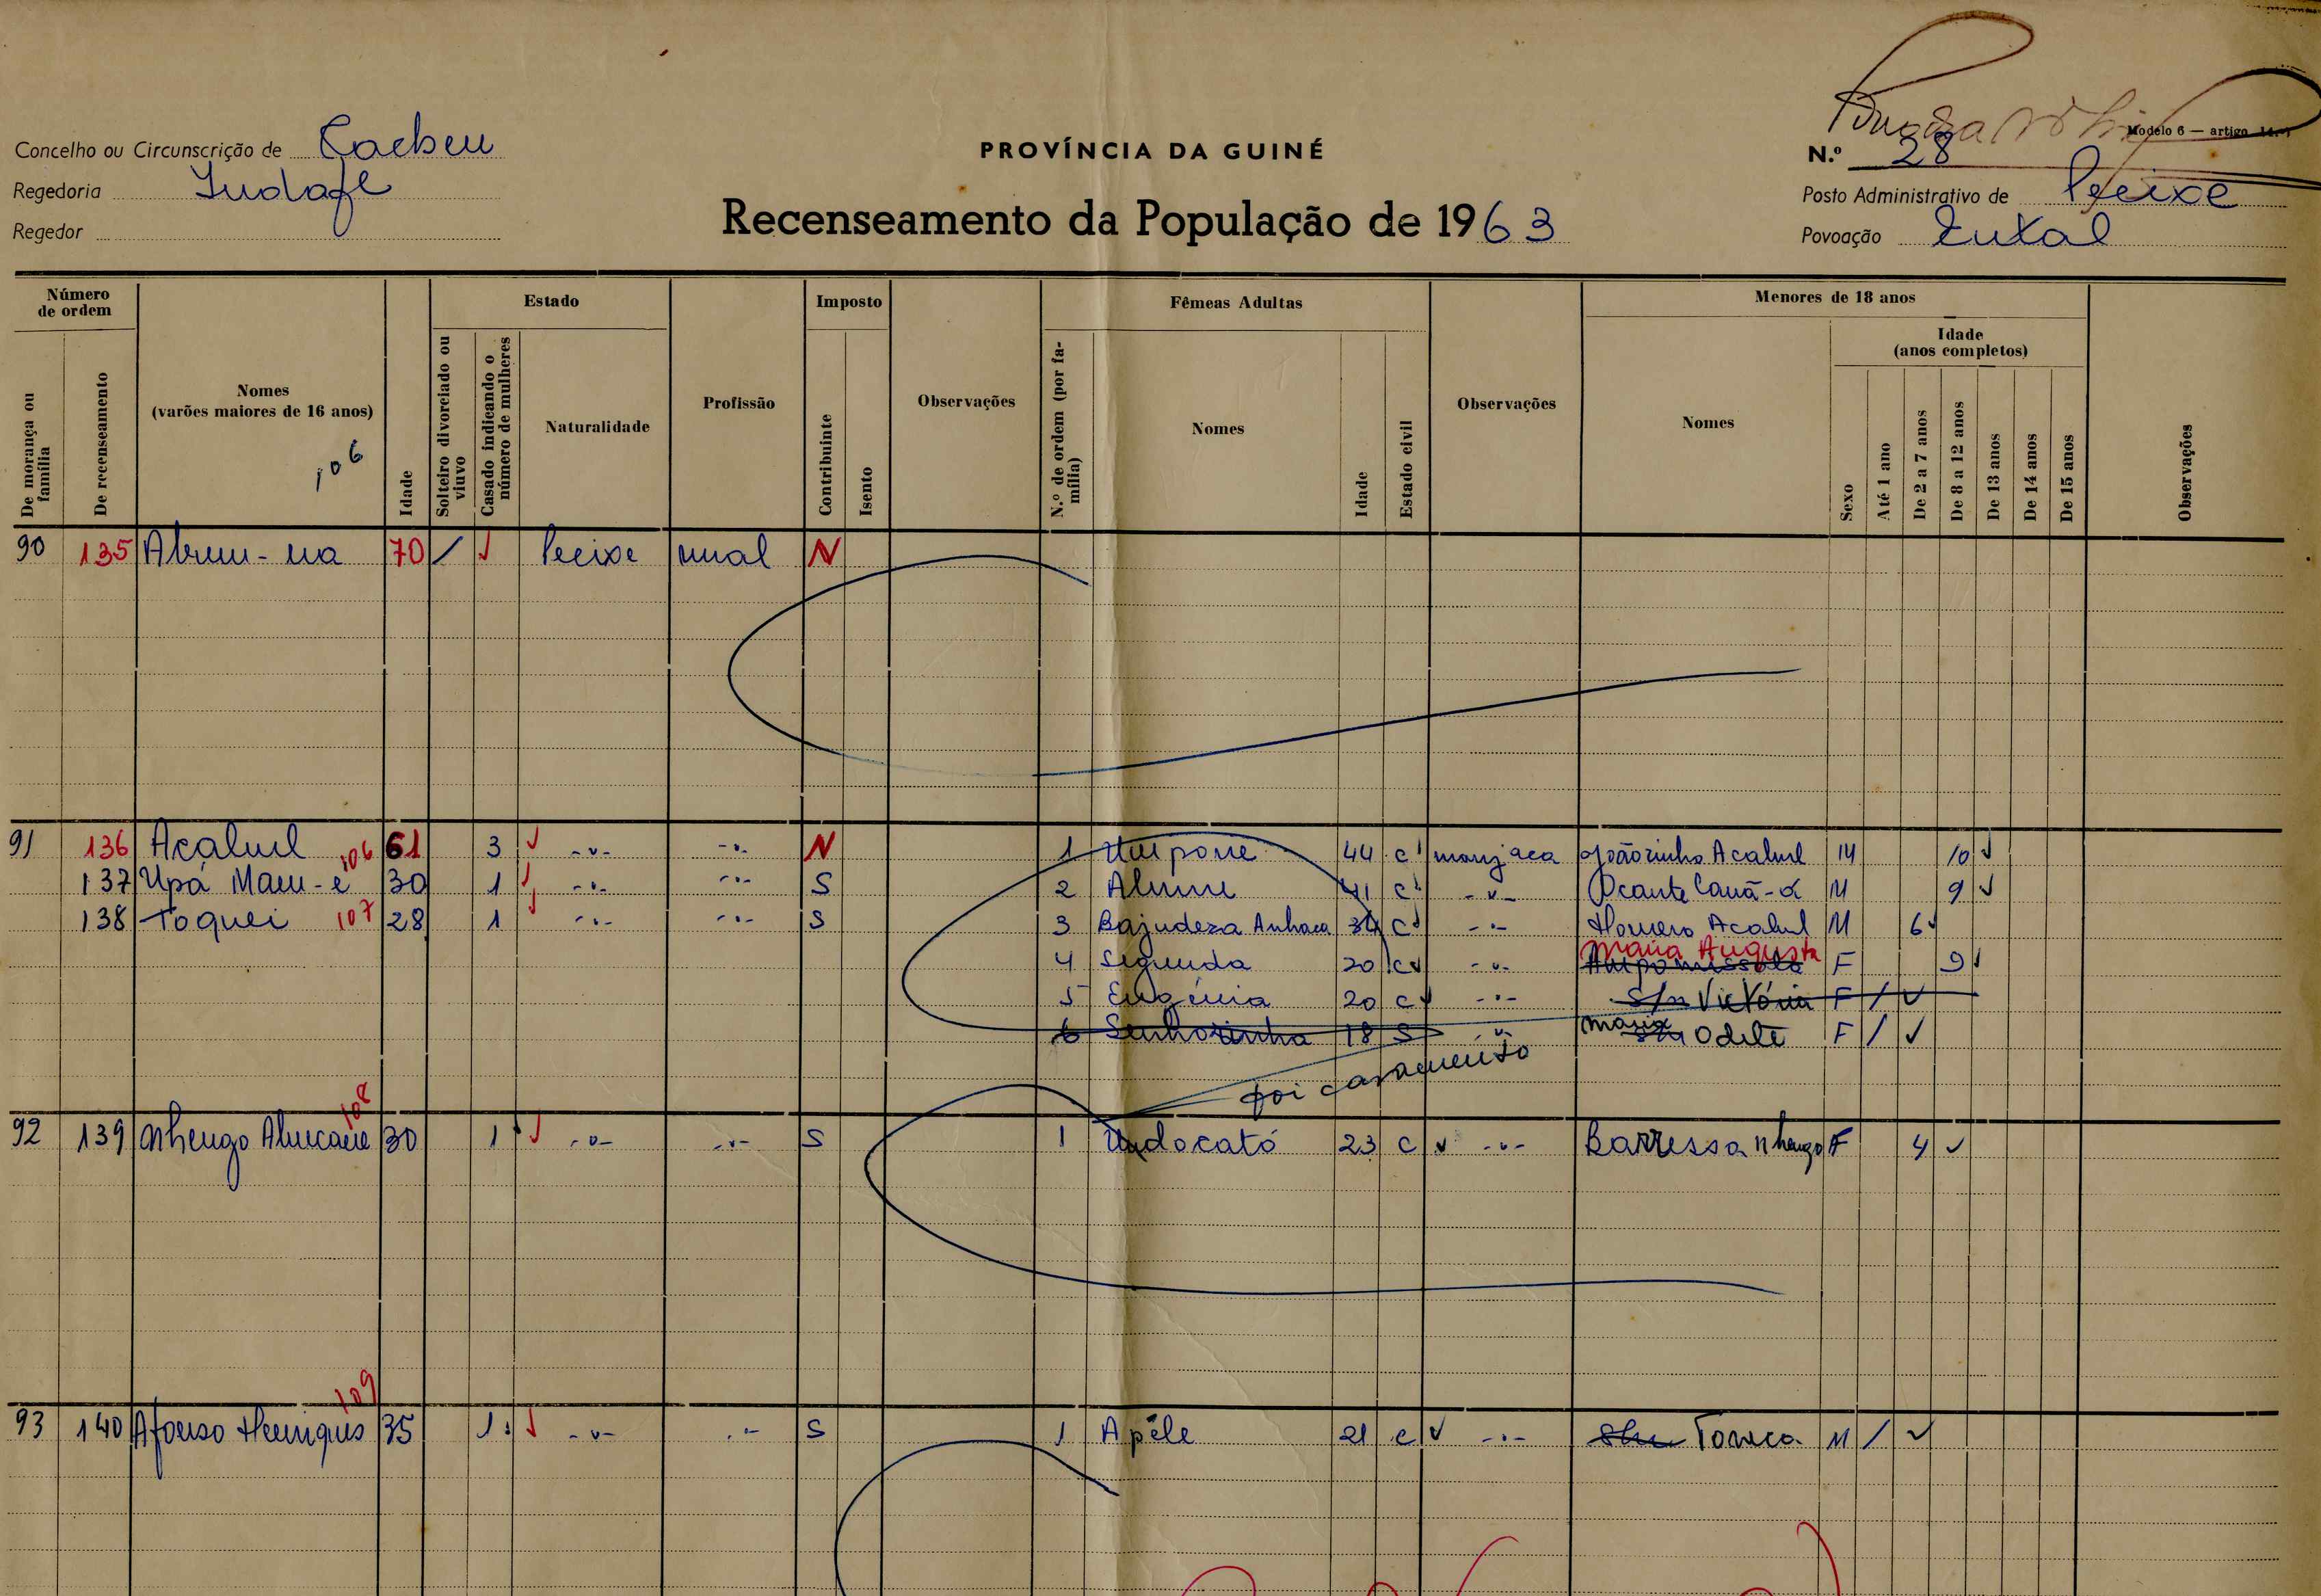 Modelo 6 — artigo
Concelho ou Circunscrição de Cacheu
PROVÍNCIA DA GUINÉ
N.º 28
Regedoria
Posto Administrativo de Pecixe
Recenseamento da População de 1963
Regedor
Povoação
Número de ordem
Estado
Imposto
Fêmeas Adultas
Menores de 18 anos
De morança ou família
De recenseamento
Nomes (varões maiores de 16 anos)
106
Idade
Solteiro divorciado ou viuvo
Casado indicando o número de mulheres
Naturalidade
Profissão
Contribuinte
Isento
Observações
N.º de ordem (por família)
Nomes
Idade
Estado civil
Observações
Nomes
Sexo
Idade (anos completos)
Até 1 ano
De 2 a 7 anos
De 8 a 12 anos
De 13 anos
De 14 anos
De 15 anos
Observações
90 135 70 / Pecixe N
91 136 106 61 3 -"- -"- N 1 44 c manjaca Joãozinho M 10
137 Upá 30 1 -"- -"- S 2 41 c -"- M 9
138 Toquei 107 28 1 -"- -"- S 3 Bajudeza c -"- M 6
Maria Augusta
4 Segunda 20 c -"- F 9
5 Eugénia 20 c -"- S/n Victória F /
6 Senhorinha 18 S " Maria Odete F /
foi casamento
108
92 139 Nhengo 30 1 -"- -"- S 1 23 c -"- Barressa Nhengo F 4
109
93 140 Afonso Henriques 35 1 -"- -"- S 1 Apêle 21 c -"- M /